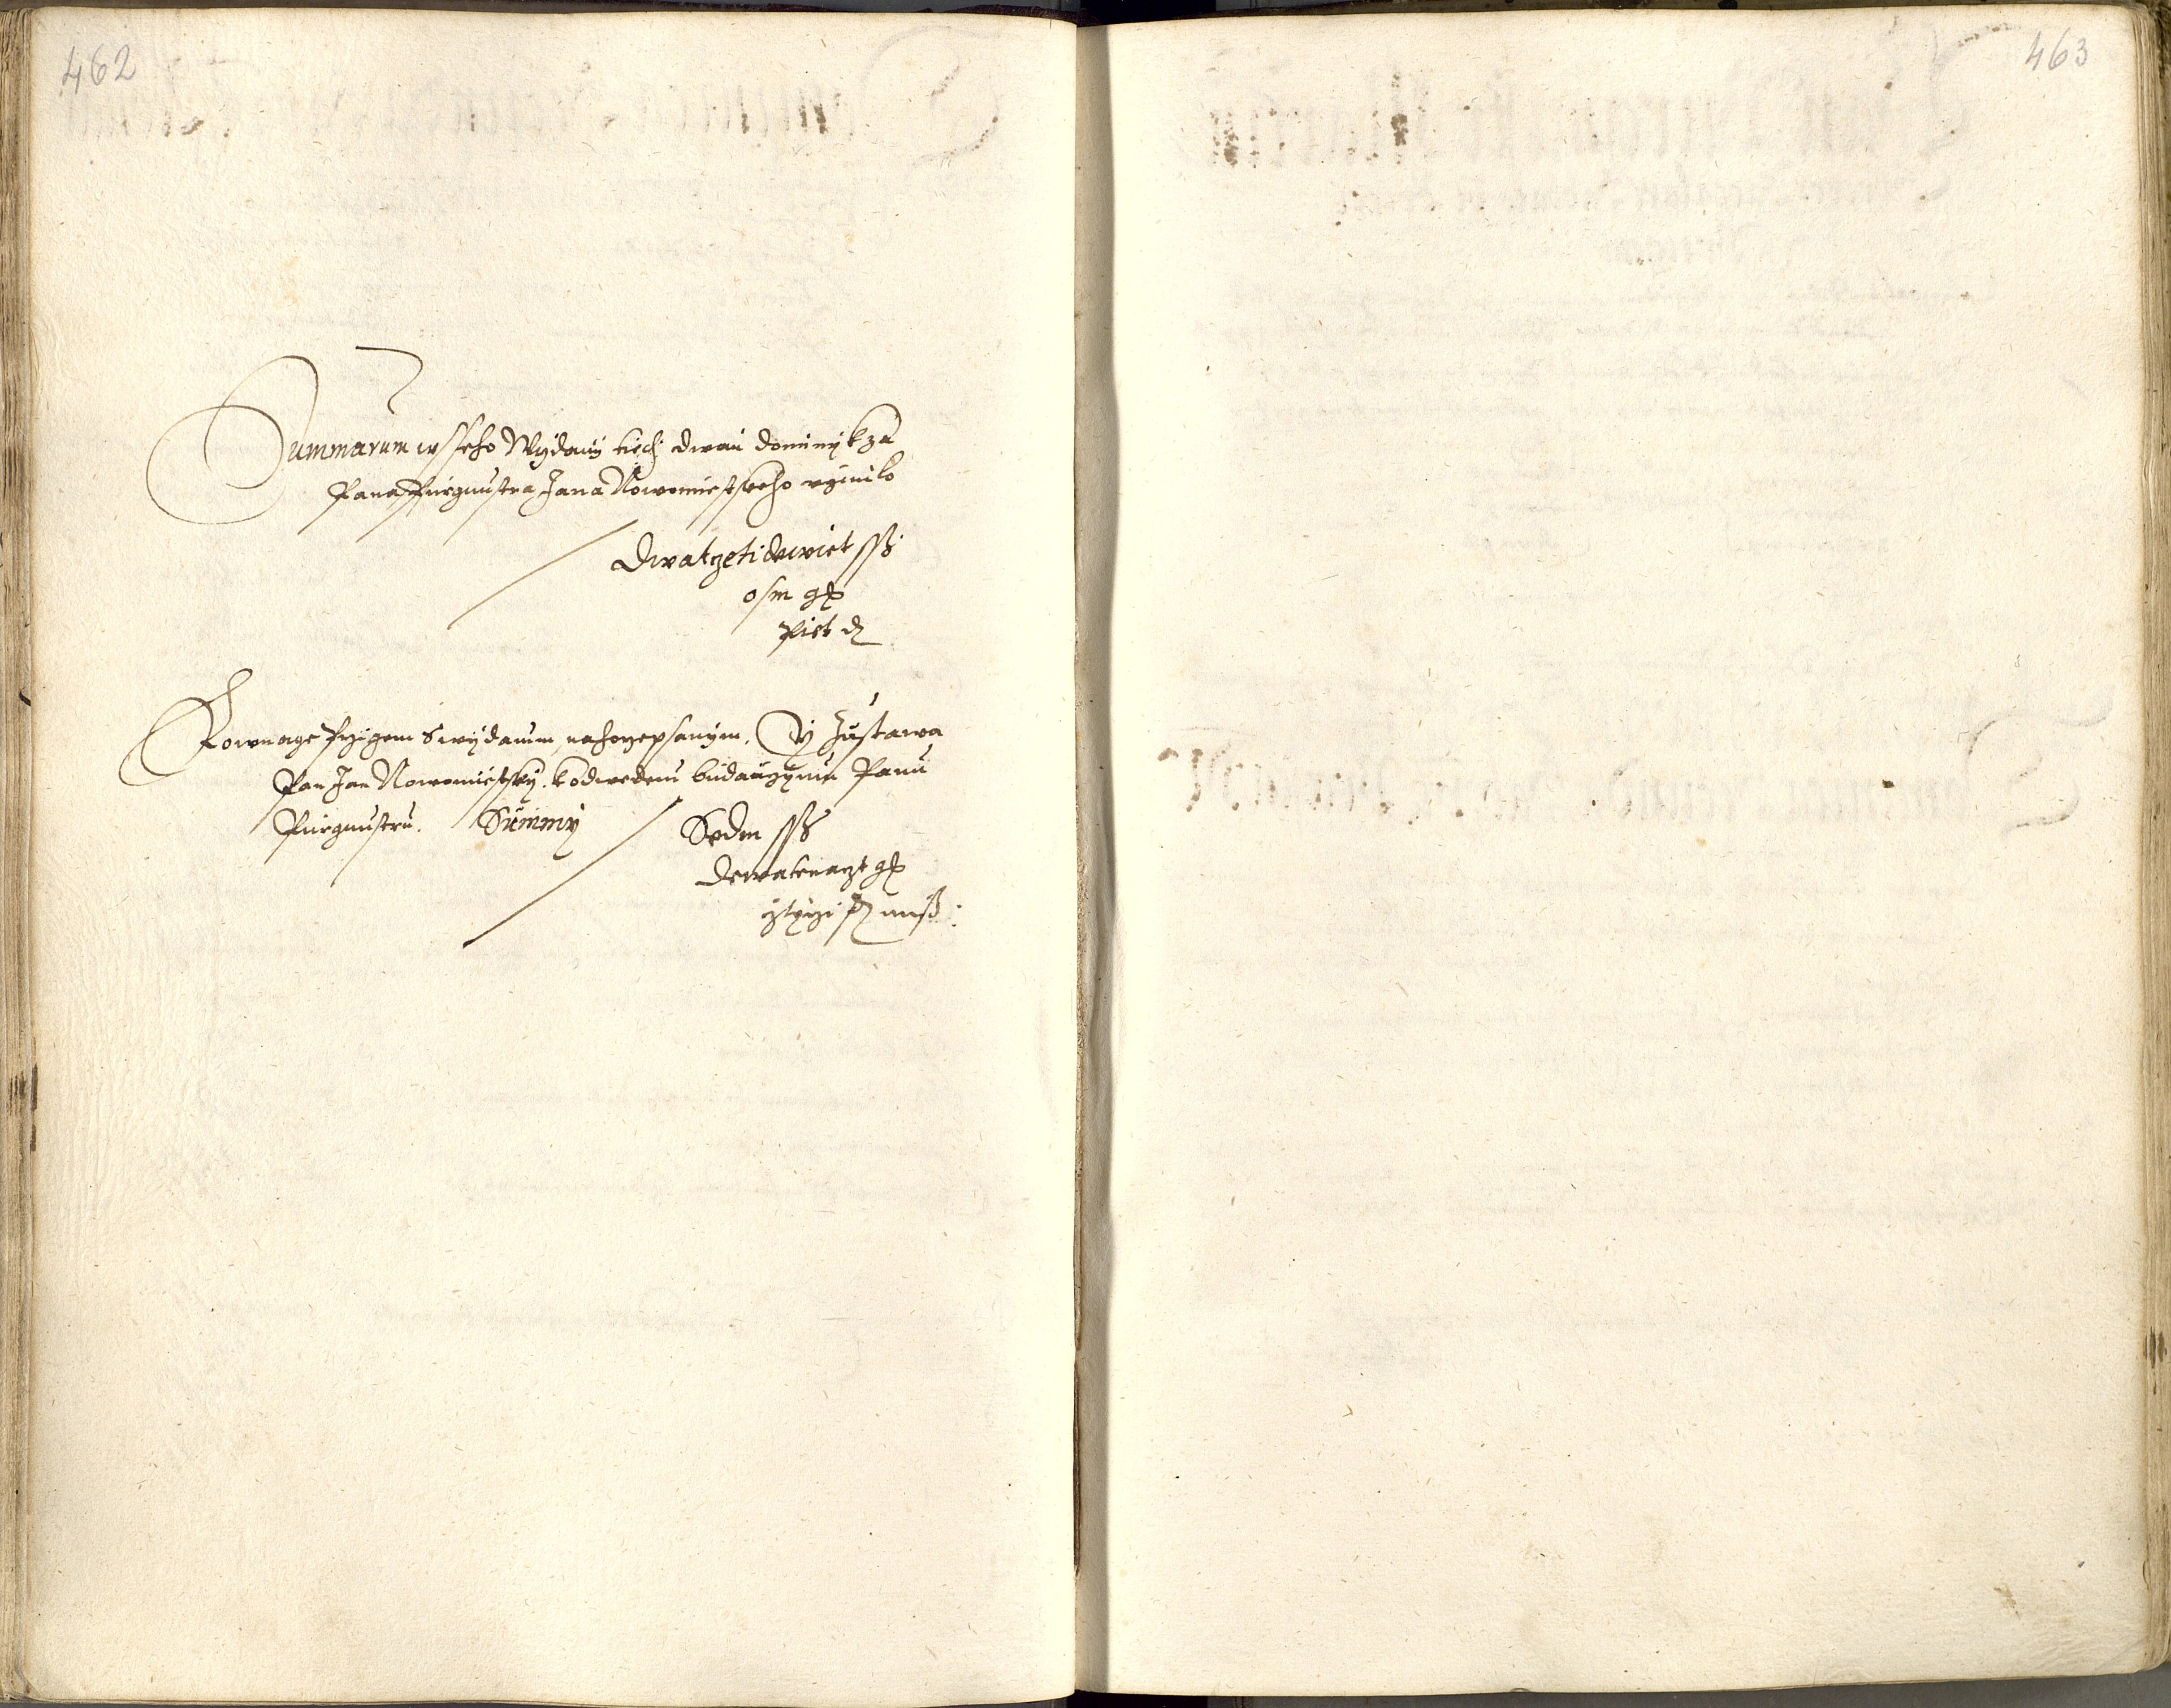 462
Summarum wsseho Wydanij tiech dwau Nedeli kza
Pana Purgmistra Jana Nowomiestskeho vginilo
Dwatzeti dewiet ss
osm gr
Piet d
Rownage Przigem S wydanim nahorzepsanym. Ty Zustawa
Pan Jan Nowomiestsky. k odwedenu budauczymu Panu
Purgmistru. Summy
Sedm ss
Dewatenatzt gr
cztyrzi d
463